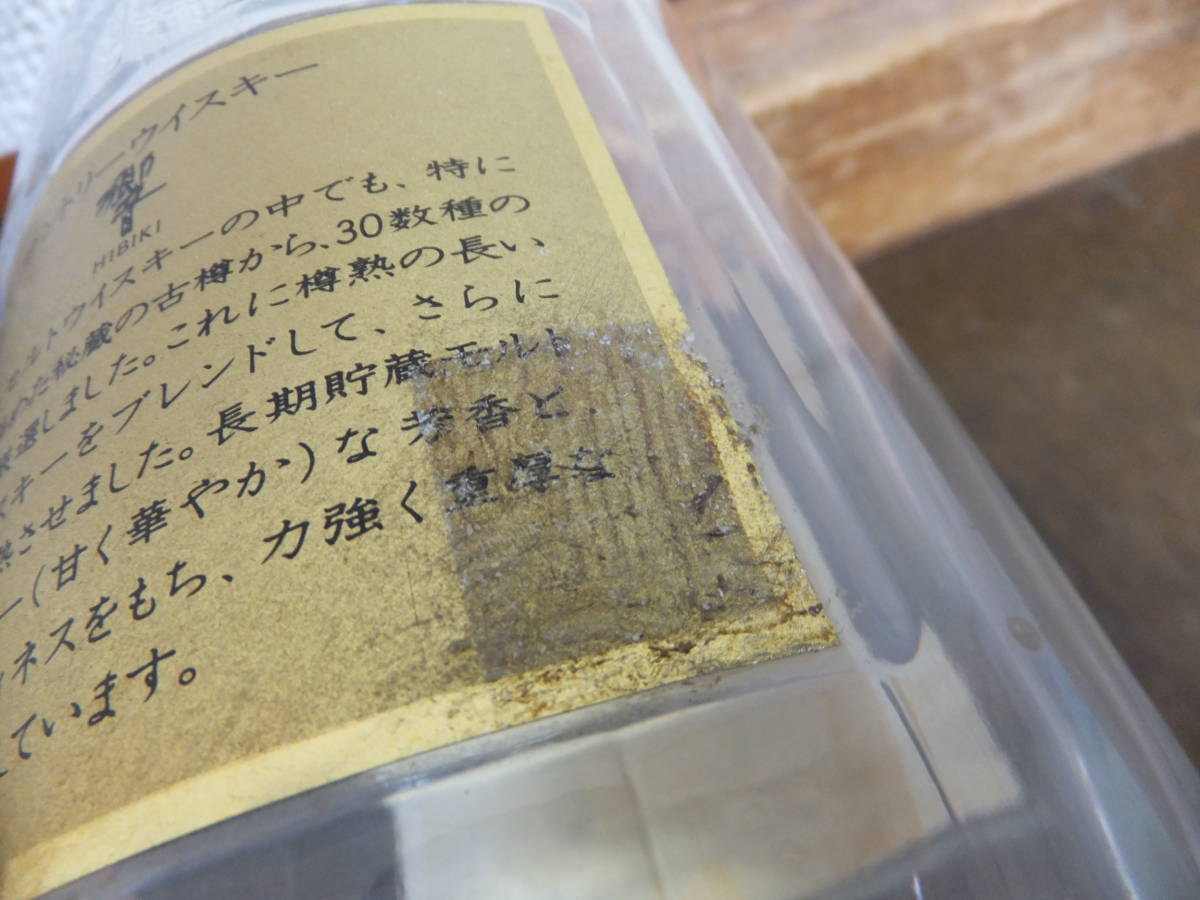 ントリーウイスキー
響
HIBIKI
モルトウイスキーの中でも、特に
秘蔵の古樽から、30数種の
選しました。これに樽熟の長い
スキーをブレンドして、さらに
させました。長期貯蔵モルト
ー(甘く華やか)な芳香と、
ネスをもち、力強く重厚な
ています。